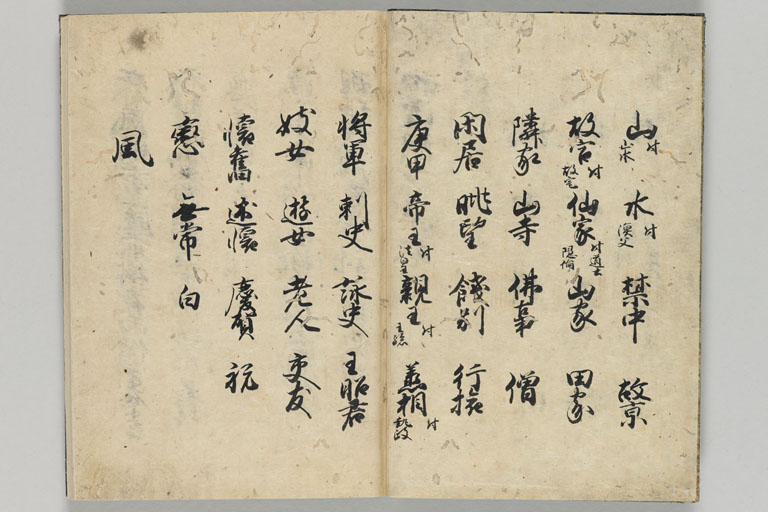 山付山水 水付漁父 禁中 故京
故宮付故宅 仙家付道士隠倫 山家 田家
隣家 山寺 佛事 僧
閑居 眺望 餞別 行旅
庚申 帝王付法皇 親王付王孫 丞相付執政
将軍 刺史 詠史 王昭君
妓女 遊女 老人 交友
懐舊 述懐 慶賀 祝
戀 無常 白
風